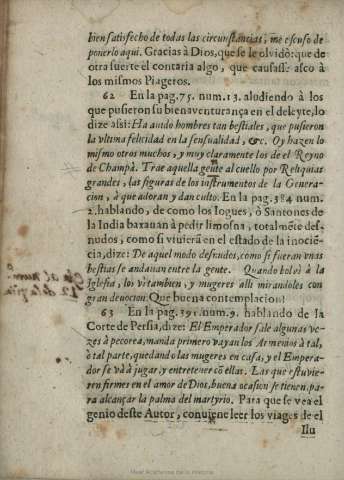 bien satisfecho de todas las circunstancias, me escuso de
ponerlo aqui. Gracias à Dios, que se le olvidò: que de
otra suerte èl contaria algo, que causasse asco à
los mismos Piageros.
62 En la pag. 75. num. 13. aludiendo à los
que pusieron su bienaventurança en el deleyte, lo
dize assi: Ha auido hombres tan bestiales, que pusieron
la vltima felicidad en la sensualidad, &c. Oy hazen lo
mismo otros muchos, y muy claramente los de el Reyno
de Champà. Trae aquella gente al cuello por Reliquias
grandes, las figuras de los instrumentos de la Genera-
cion, à que adoran y dan culto. En la pag. 384 num
2. hablando, de como los Iogues, ò Santones de
la India baxauan à pedir limosna, totalmẽte des-
nudos, como si viuierã en el estado de la inocẽ-
cia, dize: De aquel modo desnudos, como si fueran vnas
bestias se andauan entre la gente. Quando bolvì à la
Iglesia, los vì tambien, y mugeres alli mirandoles con
gran deuocion. Que buena contemplacion!
63 En la pag. 391. num. 9. hablando de la
Corte de Persia, dize: El Emperador sale algunas ve-
zes à pecorea, manda primero vayan los Armenios à tal,
ò tal parte, quedando las mugeres en casa, y el Empera-
dor se và à jugar, y entretener cõ ellas. Las que estuvie-
ren firmes en el amor de Dios, buena ocasion se tienen, pa-
ra alcançar la palma del martyrio. Para que se vea el
genio deste Autor, conuiene leer los viages de el
Ilu
Real Academia de la Historia